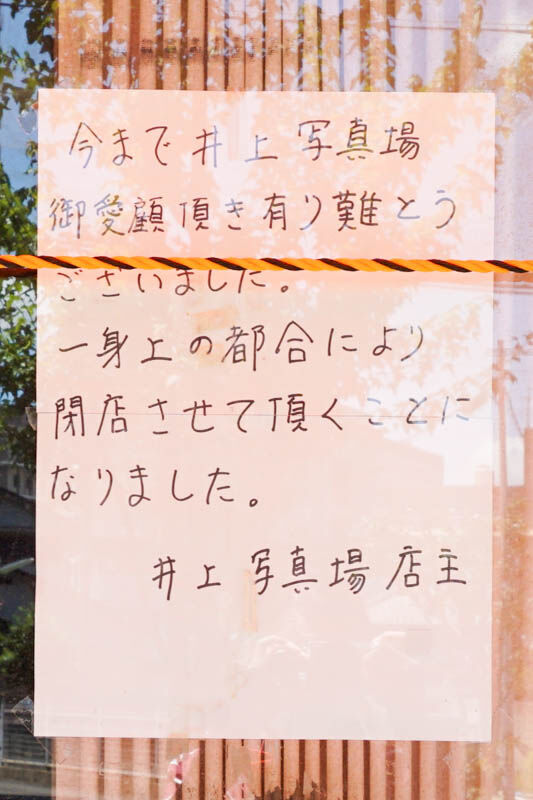 今まで井上写真場
御愛顧頂き有り難とう
ございました。
一身上の都合により
閉店させて頂くことに
なりました。
井上写真場店主